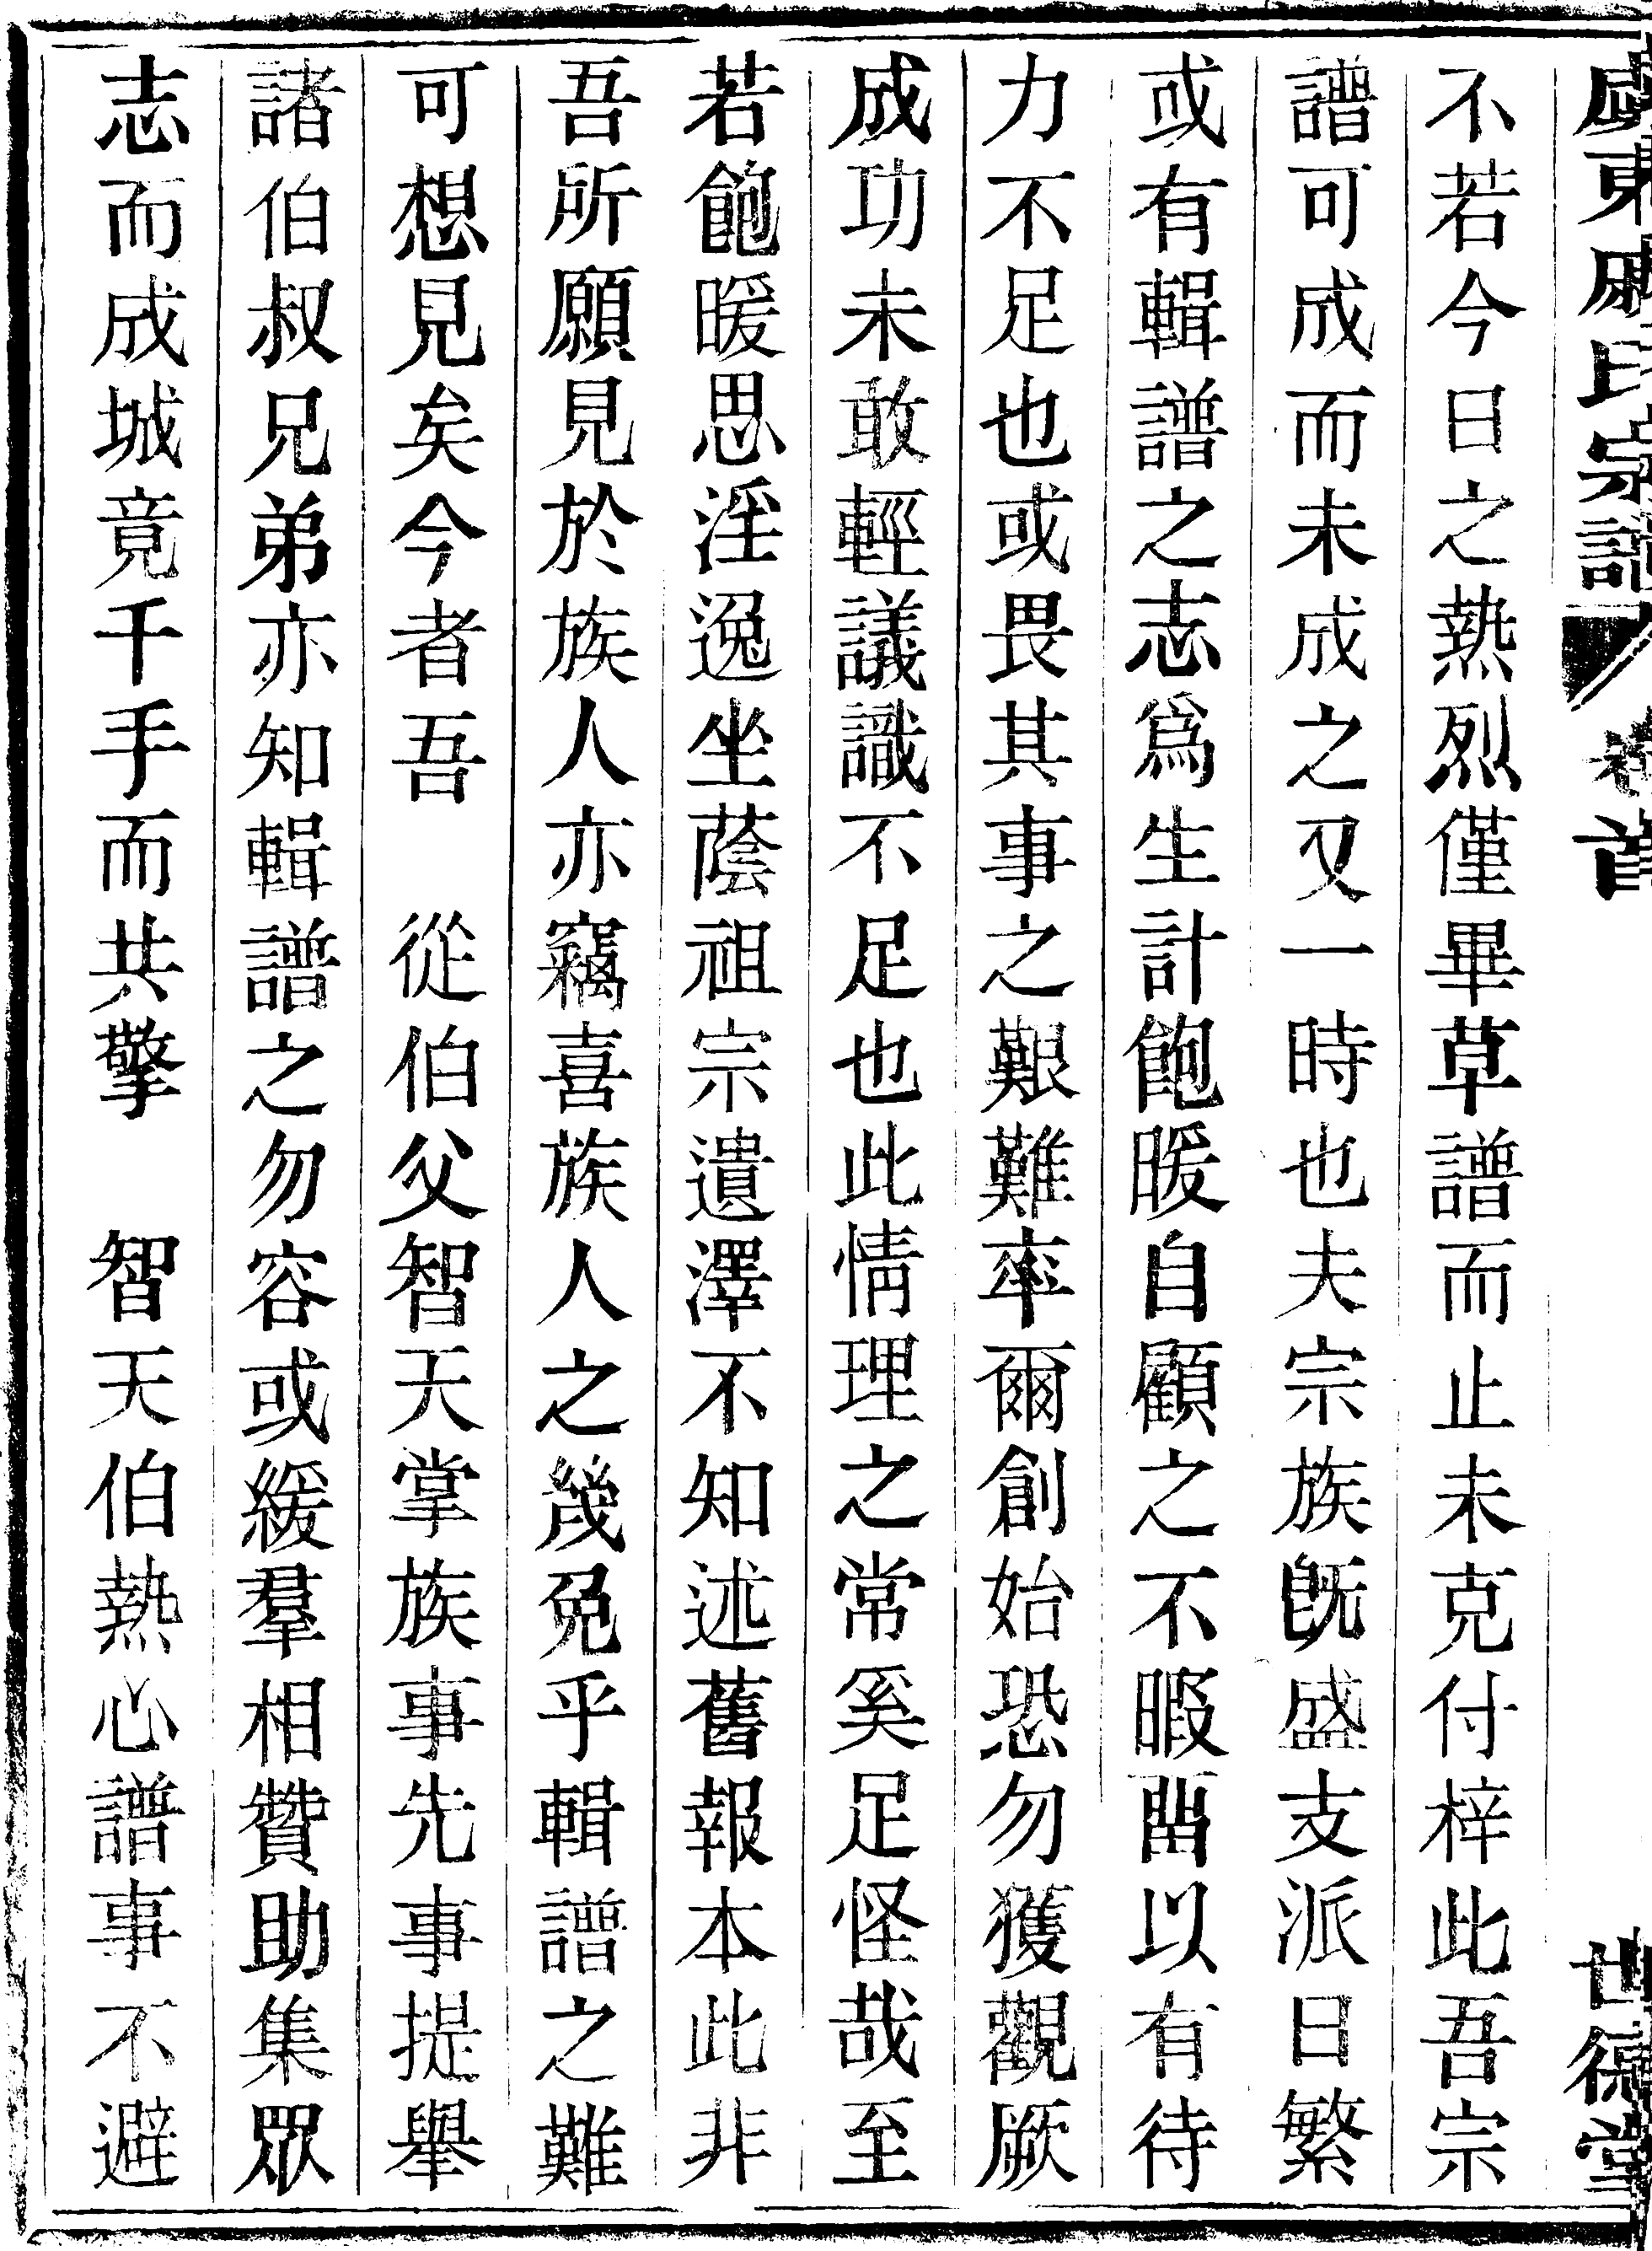 東 氏宗譜 卷首 世德堂
不若今日之熱烈僅畢草譜而止未克付梓此吾宗
譜可成而未成之又一時也夫宗族旣盛支派日繁
或有輯譜之志爲生計飽暖自顧之不暇畱以有待
力不足也或畏其事之艱難率爾創始恐勿獲觀厥
成功未敢輕議識不足也此情理之常奚足怪哉至
若飽暖思淫逸坐蔭祖宗遺澤不知述舊報本此非
吾所願見於族人亦竊喜族人之幾免乎輯譜之難
可想見矣今者吾　從伯父智天掌族事先事提舉
諸伯叔兄弟亦知輯譜之勿容或緩羣相贊助集眾
志而成城竟千手而共擎　智天伯熱心譜事不避